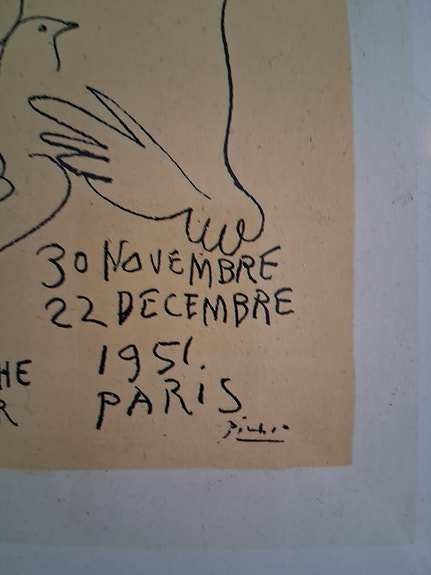 30 NOVEMBRE
22 DECEMBRE
1951.
HE PARIS
R
Picasso